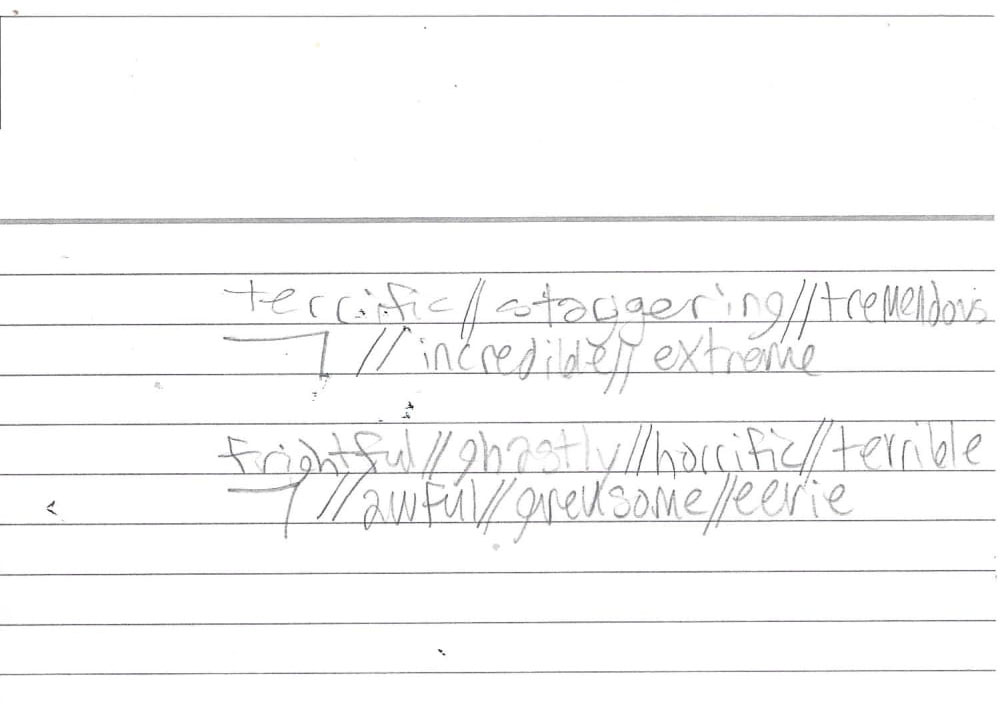 terrific//staggering//tremendous
//incredible//extreme
frightful//ghastly//horrific//terrible
//awful//greusome//eerie